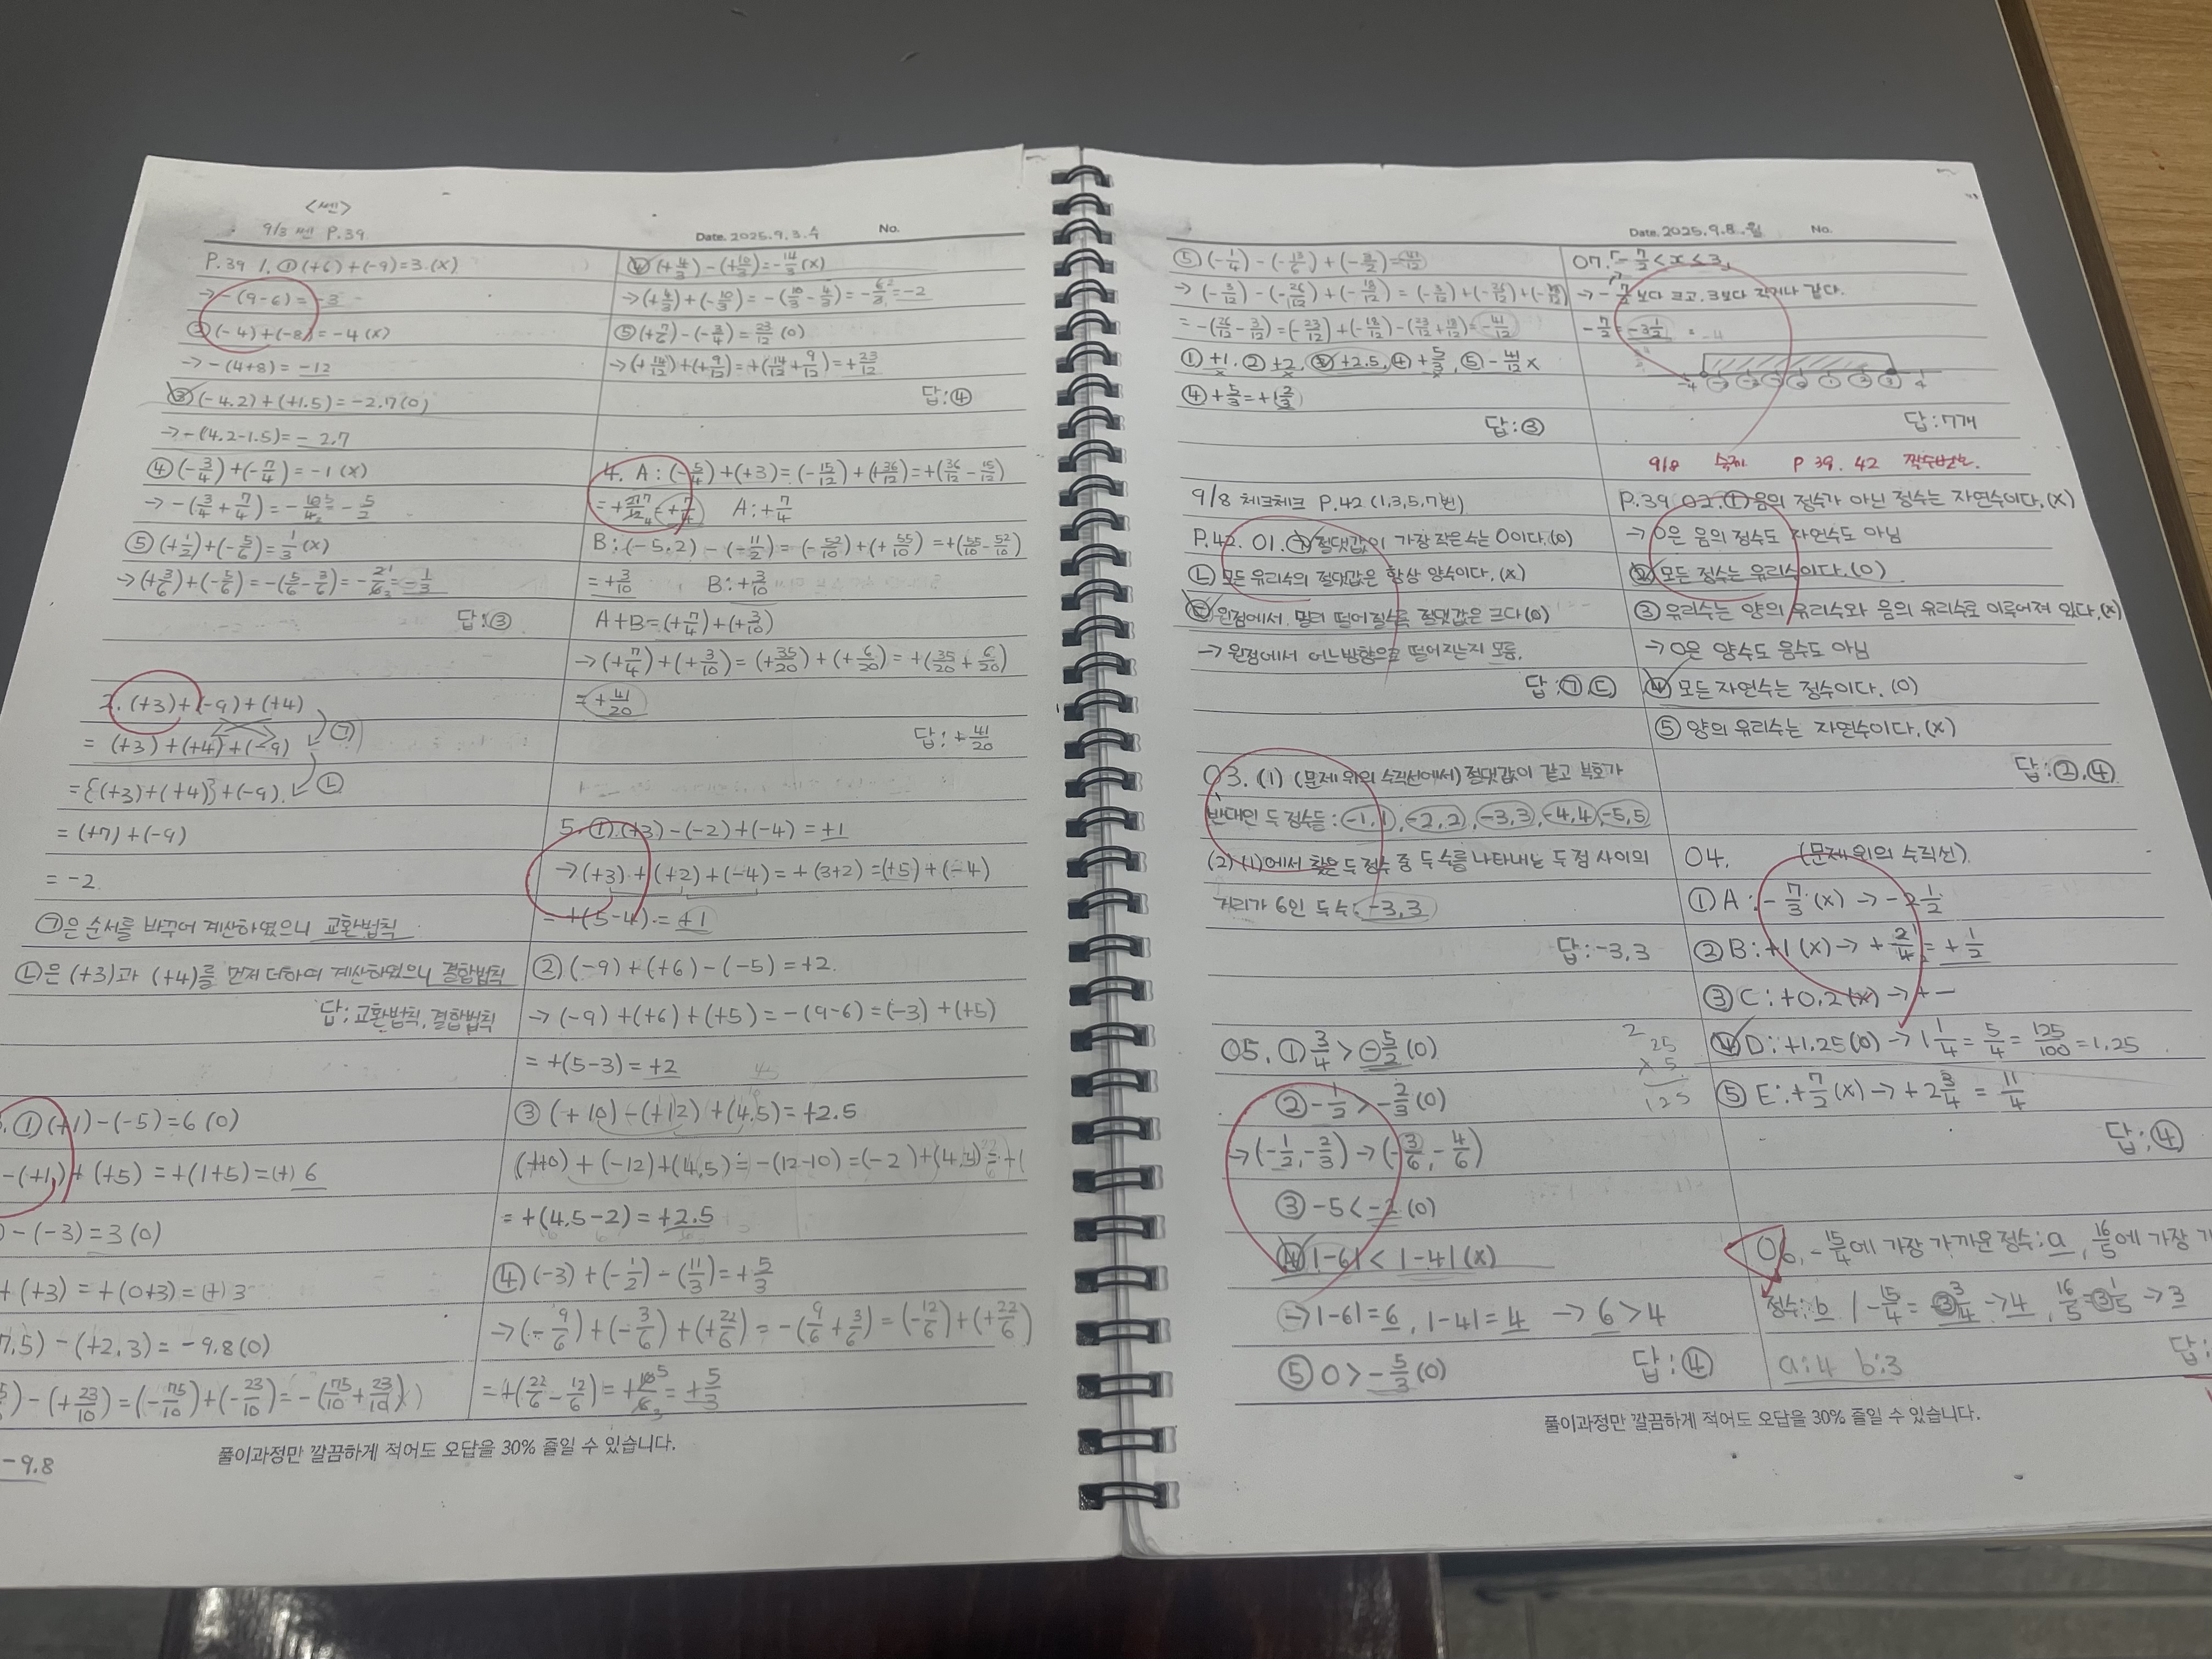 <쎈>
9/3 쎈 P.39
Date. 2025. 9. 3. 수
No.
P.39 1. ① (+6) + (-9) = 3. (x)
→ -(9-6) = -3
② (-4) + (-8) = -4 (x)
→ -(4+8) = -12
③ (-4.2) + (+1.5) = -2.7 (o)
→ -(4.2-1.5) = -2.7
④ (-3/4) + (-7/4) = -1 (x)
→ -(3/4 + 7/4) = -10/4 = -5/2
⑤ (+1/2) + (-5/6) = 1/3 (x)
→ (+3/6) + (-5/6) = -(5/6 - 3/6) = -2/6 = -1/3
답: ③
2. (+3) + (-9) + (+4)
= (+3) + (+4) + (-9) ㉠
= {(+3) + (+4)} + (-9). ㉡
= (+7) + (-9)
= -2
㉠은 순서를 바꾸어 계산하였으니 교환법칙
㉡은 (+3)과 (+4)를 먼저 더하여 계산하였으니 결합법칙
답: 교환법칙, 결합법칙
① (+1) - (-5) = 6 (o)
(+1) + (+5) = +(1+5) = (+) 6
- (-3) = 3 (o)
+ (+3) = +(0+3) = (+) 3
7.5) - (+2.3) = -9.8 (o)
) - (+23/10) = (-75/10) + (-23/10) = -(75/10 + 23/10)
-9.8
④ (+4/3) - (+10/3) = -14/3 (x)
→ (+4/3) + (-10/3) = -(10/3 - 4/3) = -6/3 = -2
⑤ (+7/6) - (-3/4) = 23/12 (o)
→ (+14/12) + (+9/12) = +(14/12 + 9/12) = +23/12
답: ④
4. A: (-5/4) + (+3) = (-15/12) + (+36/12) = +(36/12 - 15/12)
= +21/12 = +7/4 A: +7/4
B: (-5.2) - (-11/2) = (-52/10) + (+55/10) = +(55/10 - 52/10)
= +3/10 B: +3/10
A+B = (+7/4) + (+3/10)
→ (+7/4) + (+3/10) = (+35/20) + (+6/20) = +(35/20 + 6/20)
= +41/20
답: +41/20
5. ① (+3) - (-2) + (-4) = +1
→ (+3) + (+2) + (-4) = +(3+2) = (+5) + (-4)
= +(5-4) = +1
② (-9) + (+6) - (-5) = +2.
→ (-9) + (+6) + (+5) = -(9-6) = (-3) + (+5)
= +(5-3) = +2
③ (+10) - (+12) + (4.5) = +2.5
(+10) + (-12) + (4.5) = -(12-10) = (-2) + (4.5)
= +(4.5-2) = +2.5
④ (-3) + (-1/2) - (11/3) = +5/3
→ (-9/6) + (-3/6) + (+22/6) = -(9/6 + 3/6) = (-12/6) + (+22/6)
= +(22/6 - 12/6) = +10/6 = +5/3
풀이과정만 깔끔하게 적어도 오답을 30% 줄일 수 있습니다.
Date. 2025. 9. 8. 월
No.
⑤ (-1/4) - (-13/6) + (-3/2) = 41/12
→ (-3/12) - (-26/12) + (-18/12) = (-3/12) + (-26/12) + (-18/12)
= -(26/12 - 3/12) = (-23/12) + (-18/12) - (23/12 + 18/12) = -41/12
① +1. ② +2, ③ +2.5, ④ +5/3, ⑤ -41/12 x
④ +5/3 = +1 2/3
답: ③
9/8 체크체크 P.42 (1,3,5,7번)
P.42. 01. ㉠ 절댓값이 가장 작은 수는 0이다. (o)
㉡ 모든 유리수의 절댓값은 항상 양수이다. (x)
㉢ 원점에서 멀리 떨어질수록 절댓값은 크다 (o)
→ 원점에서 어느방향으로 떨어지는지 모름.
답: ㉠, ㉢
03. (1) (문제 위의 수직선에서) 절댓값이 같고 부호가
반대인 두 정수들: -1,1, -2,2, -3,3, -4,4, -5,5
(2) (1)에서 찾은 두 정수 중 두 수를 나타내는 두 점 사이의
거리가 6인 두 수: -3,3
답: -3,3
05. ① 3/4 > -5/2 (o)
② -1/2 > -2/3 (o)
→ (-1/2, -2/3) → (-3/6, -4/6)
③ -5 < -2 (o)
④ |-6| < |-4| (x)
→ |-6| = 6, |-4| = 4 → 6 > 4
⑤ 0 > -5/3 (o) 답: ④
07. 「-7/2 < x ≤ 3」
→ -7/2보다 크고, 3보다 작거나 같다.
-7/2 = -3 1/2
답: 7개
9/8 숙제 P 39. 42 짝수번호.
P.39 02. ① 음의 정수가 아닌 정수는 자연수이다. (x)
→ 0은 음의 정수도 자연수도 아님
② 모든 정수는 유리수이다. (o)
③ 유리수는 양의 유리수와 음의 유리수로 이루어져 있다. (x)
→ 0은 양수도 음수도 아님
④ 모든 자연수는 정수이다. (o)
⑤ 양의 유리수는 자연수이다. (x)
답: ②, ④
04. (문제 위의 수직선).
① A: -7/3 (x) → -2 1/2
② B: +1 (x) → +2/4 = +1/2
③ C: +0.2 (x) → + -
2
25
x 5
125
④ D: +1.25 (o) → 1 1/4 = 5/4 = 125/100 = 1.25
⑤ E: +7/2 (x) → +2 3/4 = 11/4
답: ④
06. -15/4에 가장 가까운 정수: a, 16/5에 가장
정수: b |-15/4 = 3 3/4 → 4, 16/5 = 3 1/5 → 3
a: 4 b: 3
답:
풀이과정만 깔끔하게 적어도 오답을 30% 줄일 수 있습니다.